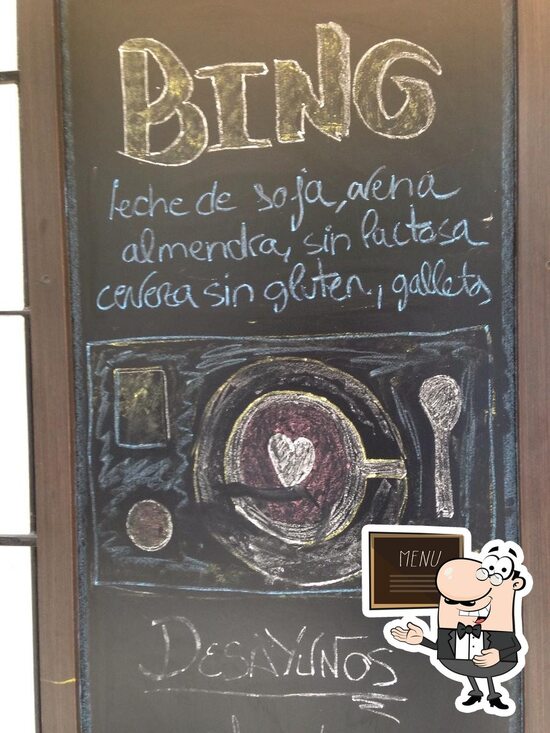 BING
leche de soja, avena
almendra, sin lactosa
cerveza sin gluten, galletas
DESAYUNOS
MENU